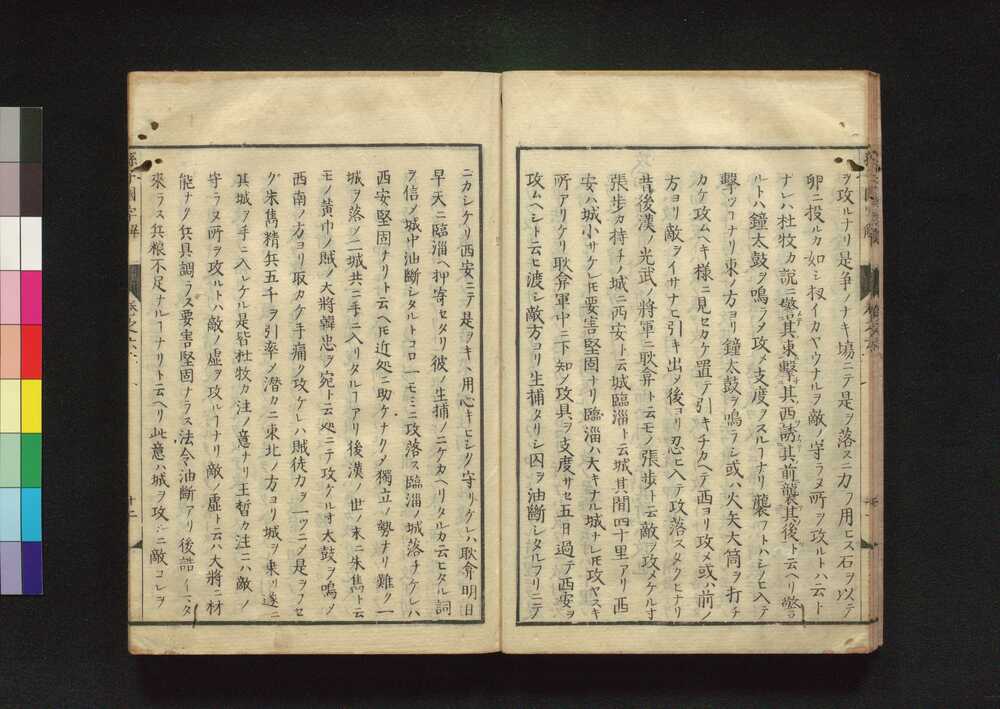 ヲ攻ルナリ是爭ノナキ場ニテ是ヲ落スニ力ヲ用ヒス石ヲ以テ
卵ニ投ルカ如シ扨イカヤウナルヲ敵ノ守ラヌ所ヲ攻ルトハ云ト
ナレハ杜牧カ説ニ警其東擊其西誘其前襲其後ト云ヘリ警
ルトハ鐘太鼓ヲ鳴ラヌ攻メ支度ヲスルヿナリ襲フトハシノヒ入テ
擊ツヿナリ東ノ方ヨリ鐘太鼓ヲ鳴ラシ或ハ火矢大筒ヲ打チ
カケ攻ムヘキ様ニ見セカケ置テ引キチカヘテ西ヨリ攻メ或ハ前ノ
方ヨリ敵ヲイサナヒ引キ出ヲ後ヨリ忍ヒ入テ攻落スタクヒナリ
昔後漢ノ光武ノ將軍ニ耿弇ト云モノ張歩ト云敵ヲ攻メケルオ
張歩カ持チノ城ニ西安ト云城臨淄ト云城其間四十里アリ西
安ハ城小サケレ𪜈要害堅固ナリ臨淄ハ大キナル城ナレ𪜈攻ヤスキ
所アリケリ耿弇軍中ニ下知ノ攻具ヲ支度サセ五日過テ西安ヲ
攻ムヘシト云ヒ渡シ敵方ヨリ生捕タリシ囚ヲ油斷シタルフリニテ
ニカシケリ西安ニテ是ヲキヽ用心キヒシク守リケレハ耿弇明日
早天ニ臨淄ヘ押寄セタリ彼ノ生捕ノニケカヘリタルカ云ヒタル詞
ヲ信ノ城中油斷シタルトコロ一モミニ攻落ス臨淄ノ城落チケレハ
西安堅固ナリト云ヘ𪜈近処ニ助ケナクノ獨立ノ勢ナリ難ク一
城ヲ落ノ二城共ニ手ニ入リタルヿアリ後漢ノ世ノ末ニ朱雋ト云
モノ黄巾ノ賊ノ大將韓忠ヲ宛ト云処ニテ攻ケルオ太鼓ヲ鳴ノ
西南ノ方ヨリ取カケ手痛ク攻ケレハ賊徒力ヲ一ツニノ是ヲフセ
グ朱雋精兵五千ヲ引率ノ潜カニ東北ノ方ヨリ城ヲ乗リ遂ニ
其城ヲ手ニ入レケル是皆杜牧カ注ノ意ナリ王晳カ注ニハ敵ノ
守ラヌ所ヲ攻ルトハ敵ノ虚ヲ攻ルヿナリ敵ノ虚ト云ハ大將ニ材
能ナク兵具調ラス要害堅固ナラス法令油斷アリ後詰イマタ
來ラス兵粮不足ナルヿナリト云ヘリ此意ハ城ヲ攻ルニ敵コレヲ